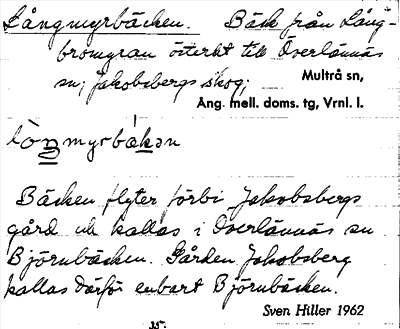 Långmyrbäcken. Bäck från Lång-
bromyran österut till Överlännäs
sn; Jakobsbergs skog;
Multrå sn,
Ång. mell. doms. tg, Vrnl. l.
lòŋmyrbäkən
Bäcken flyter förbi Jakobsbergs
gård och kallas i Överlännäs sn
Björnbäcken. Gården Jakobsberg
kallas därför enbart Björnbäcken.
Sven Hiller 1962